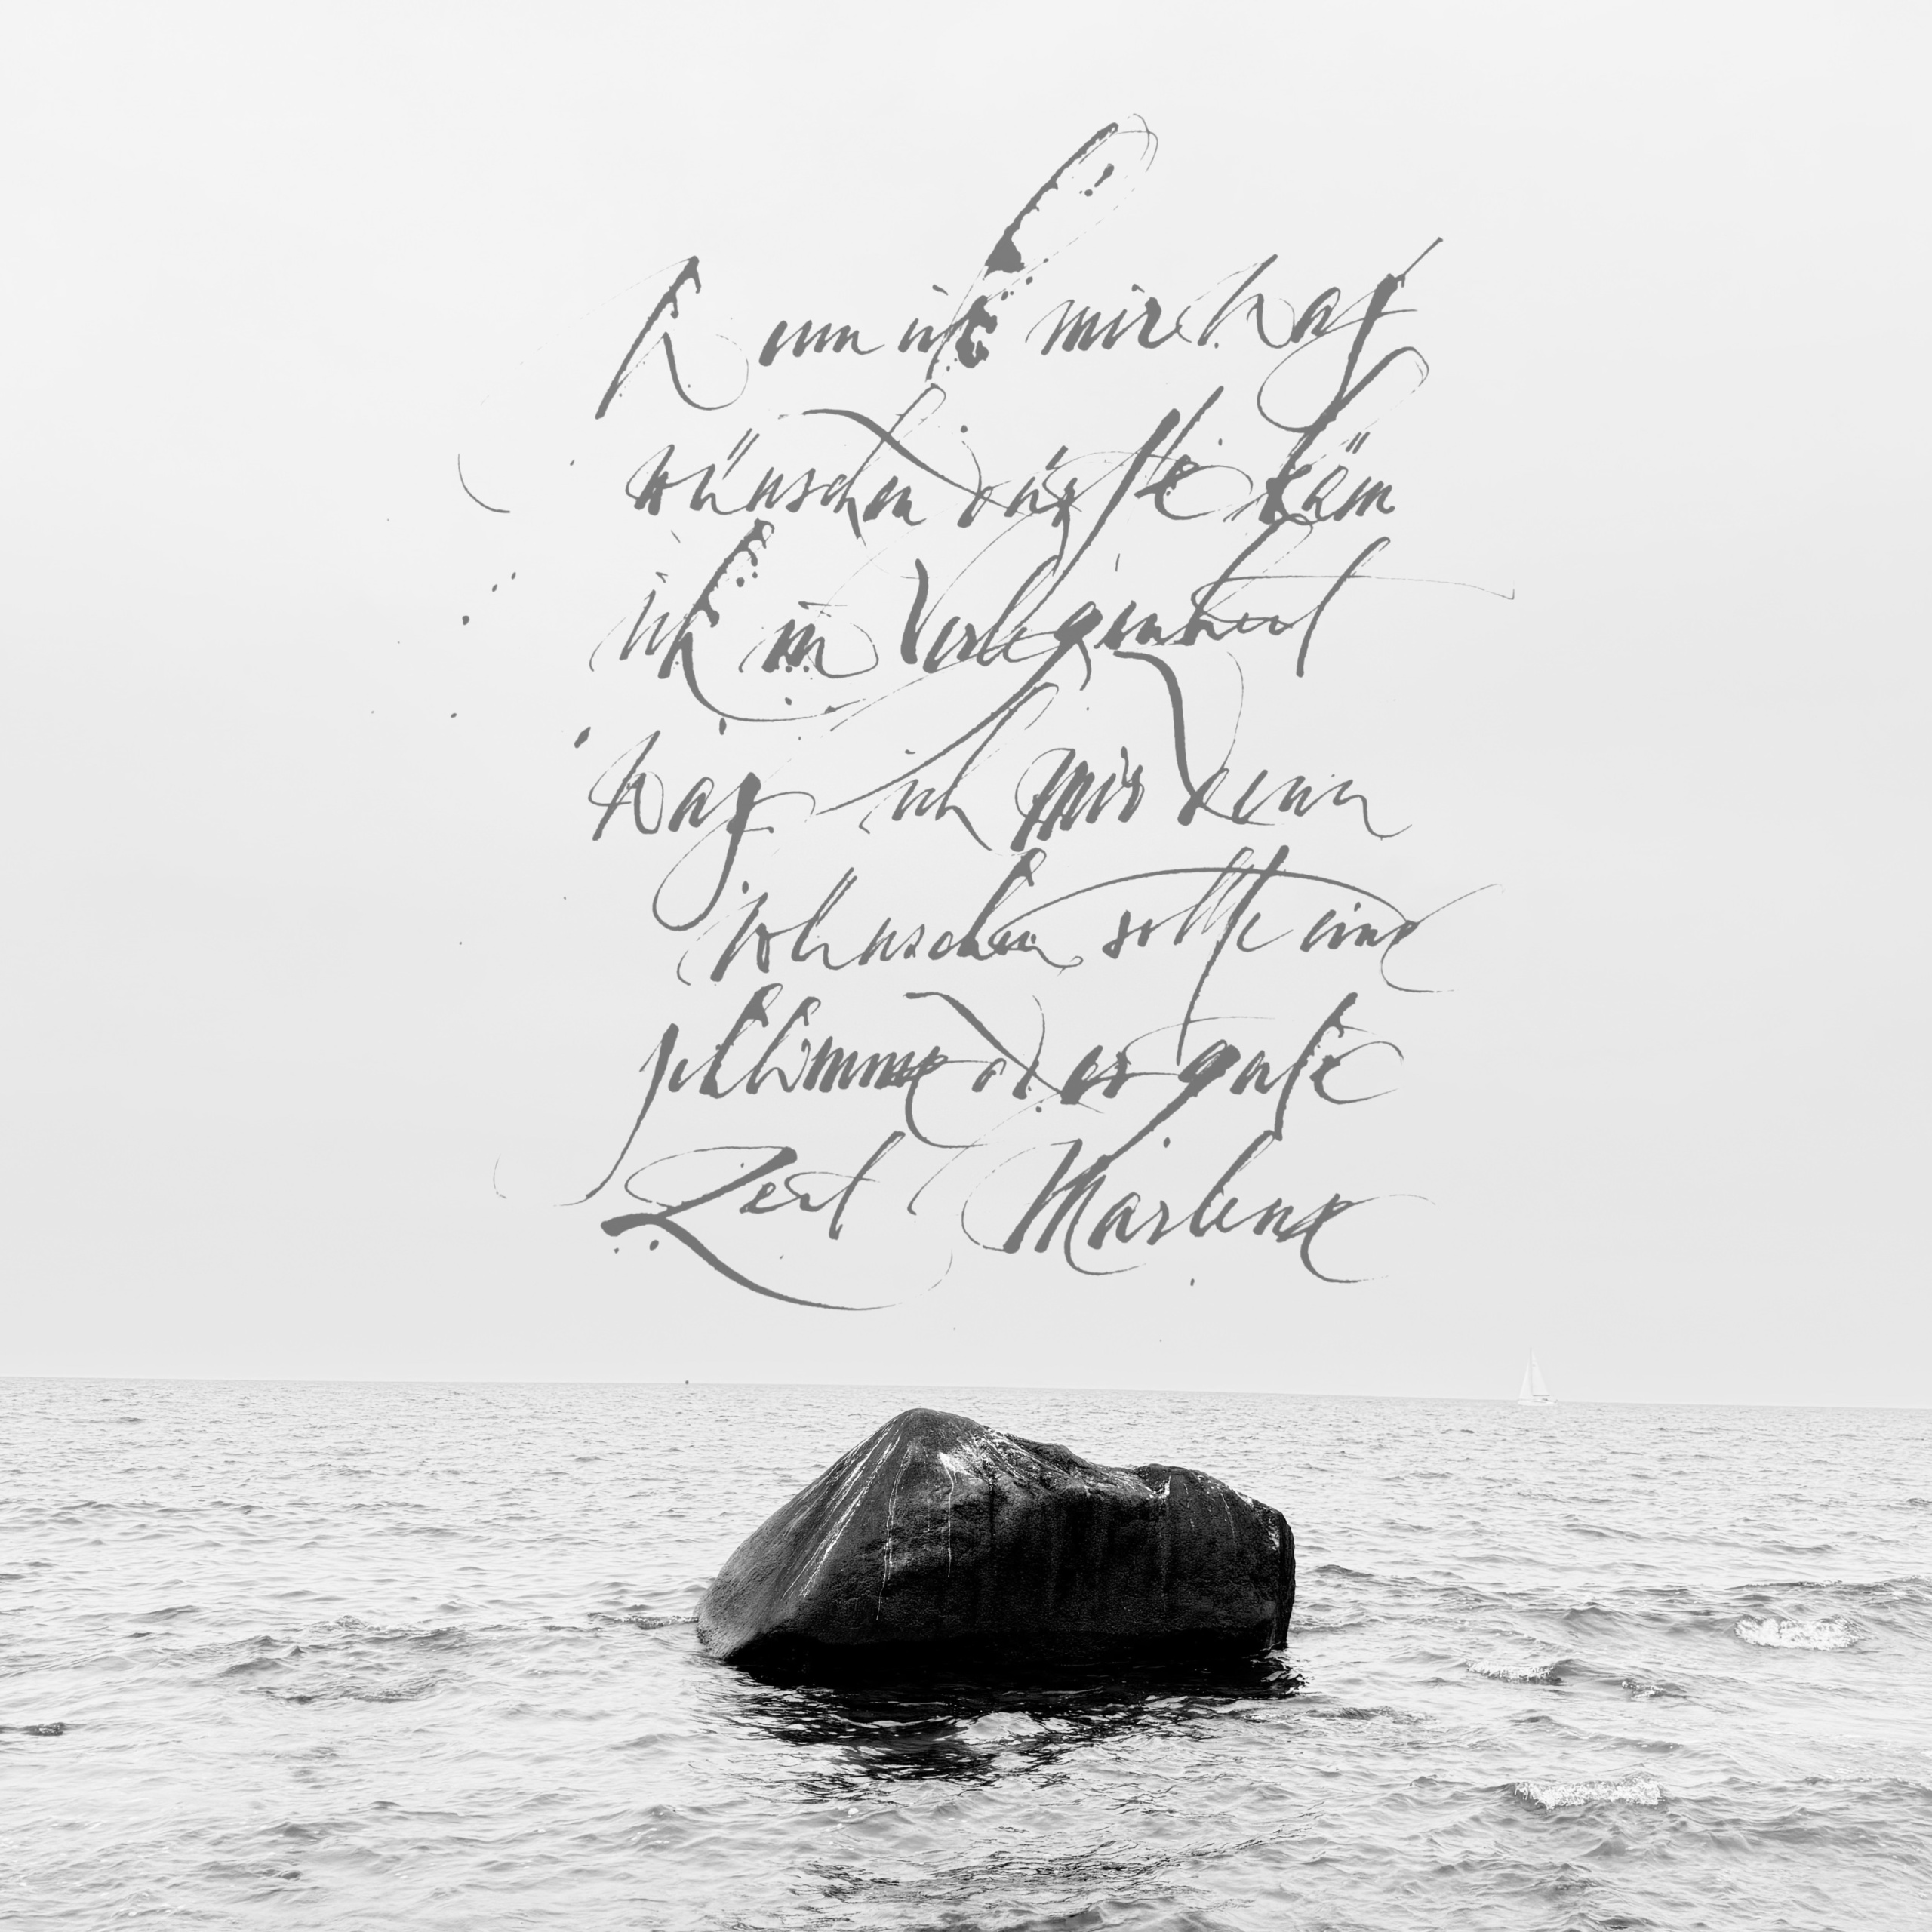 Wenn ich mir was
wünschen dürfte käm
ich in Verlegenheit
was ich mir denn
wünschen sollte eine
schlimme oder gute
Zeit Marlene